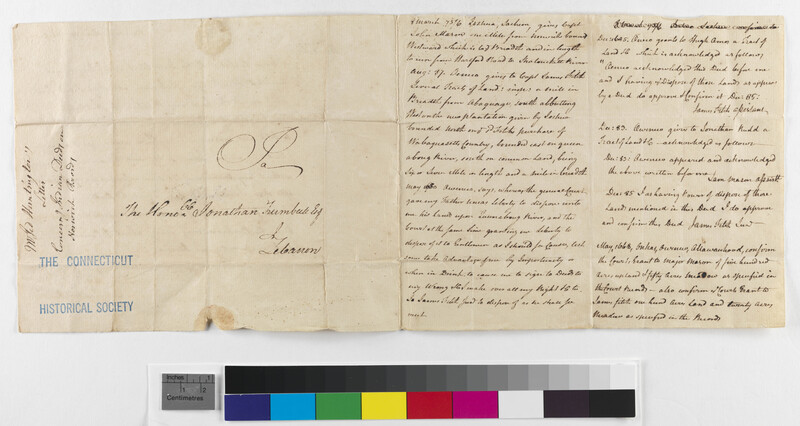 Mr Jed Huntington's
Letter
Concerng Indian Deeds in
Norwich Records
THE CONNECTICUT
HISTORICAL SOCIETY
To
The Honble Jonathan Trumbull Esq
at
Lebanon
8 March 1676 Joshua, Sachem, gives Capt
John Mason one mile from Norwich bound
Westward which is the Breadth and in length
to run from Hartford Road to Shetucket River
Aug: 17. Oweneco gives to Capt James Fitch
several Tracts of Land: singly a mile in
Breadth from Abaquage south abutting
on new plantation given by Joshua
bounded North on Fitch purchase of
Wabaquassett Country, bounded east on
River, south on common Land, being
six or seven miles in length and a mile in breadth
may Oweneco, says, whereas the general Court
gave my Father Uncas liberty to dispose unto
me his Land upon Quinabaug River, and the
Court at the same time granting me liberty to
dispose of it to Gentlemen as I should see Cause, lest
some take Advantage of me by Importunity or
when in Drink to cause me to sign to Deeds to
my Wrong I make over all my Right &c to
Js James Fitch just to dispose of as he shall see
meet
Dec: 85. Oweneco grants to Hugh Amos a Tract of
Land &c which is acknowledged as follows,
"Oweneco acknowledged this Deed before me
and I having of Dispose of those Lands as appears
by a Deed do approve & Confirm it Dec: 85:
James Fitch Assistant
Dec: 83. Oweneco gives to Jonathan Rudd a
Tract of Land &c - acknowledged as follows
Dec: 83: Oweneco appeared and acknowledged
the above written before me
Sam Mason Assistt
Dec 85 I as having Power of dispose of those
Land mentioned in this Deed I do approve
and confirm this Deed James Fitch Junr
May, 1668, Unkas, Oweneco, Attawanhood, confirm
the Courts Grant to Major Mason of five hundred
acres upland & fifty Acres meadow as specified in
the Court Records - also confirm ye Courts Grant to
James Fitch one hund acres Land and twenty Acres
Meadow as specified in the Records
Inches 1
Centimetres 1 2